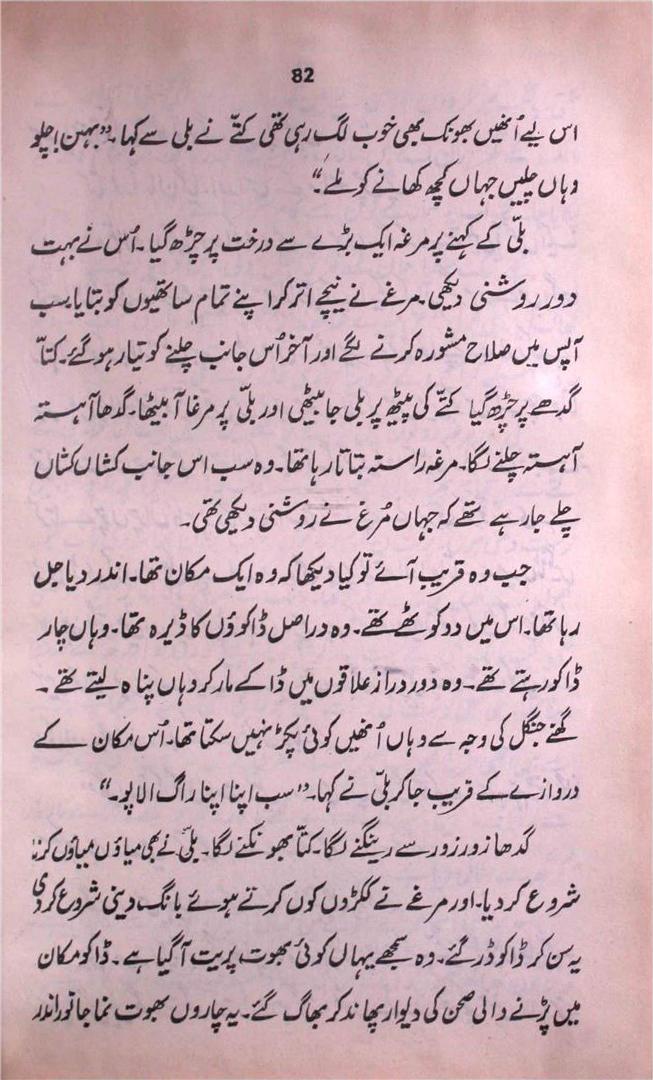 82
اس لیے اُنھیں بھونک بھی خوب لگ رہی تھی کتّے نے بلی سے کہا ۔ "بہن! چلو
وہاں چلیں جہاں کچھ کھانے کو ملے۔"
بلّی کے کہنے پر مرغہ ایک بڑے سے درخت پر چڑھ گیا ۔ اُس نے بہت
دور روشنی دیکھی۔ مرغے نے نیچے اتر کر اپنے تمام ساتھیوں کو بتایا۔ سب
آپس میں صلاح مشورہ کرنے لگے اور آخر اُس جانب چلنے کو تیار ہو گئے۔ کتّا
گدھے پر چڑھ گیا کتّے کی پیٹھ پر بلی جا بیٹھی اور بلّی پر مرغا آ بیٹھا۔ گدھا آہستہ
آہستہ چلنے لگا۔ مرغہ راستہ بتاتا رہا تھا۔ وہ سب اس جانب کشاں کشاں
چلے جا رہے تھے کہ جہاں مُرغ نے روشنی دیکھی تھی ۔
جب وہ قریب آئے تو کیا دیکھا کہ وہ ایک مکان تھا۔ اندر دیا جل
رہا تھا۔ اس میں دو کوٹھے تھے۔ وہ دراصل ڈاکوؤں کا ڈیرہ تھا۔ وہاں چار
ڈاکو رہتے تھے۔ وہ دور دراز علاقوں میں ڈاکے مار کر وہاں پناہ لیتے تھے ۔
گھنے جنگل کی وجہ سے وہاں اُنھیں کوئی پکڑ نہیں سکتا تھا۔ اُس مکان کے
دروازے کے قریب جا کر بلّی نے کہا۔ "سب اپنا اپنا راگ الاپو۔"
گدھا زور زور سے رینگنے لگا۔ کتّا بھونکنے لگا۔ بلی نے بھی میاؤں میاؤں کرنا
شروع کر دیا۔ اور مرغے نے ککڑوں کوں کرتے ہوئے بانگ دینی شروع کر دی
یہ سن کر ڈاکو ڈر گئے۔ وہ سمجھے یہاں کوئی بھوت پریت آ گیا ہے ۔ ڈاکو مکان
میں پڑنے والی صحن کی دیوار پھاند کر بھاگ گئے۔ یہ چاروں بھوت نما جانور اندر